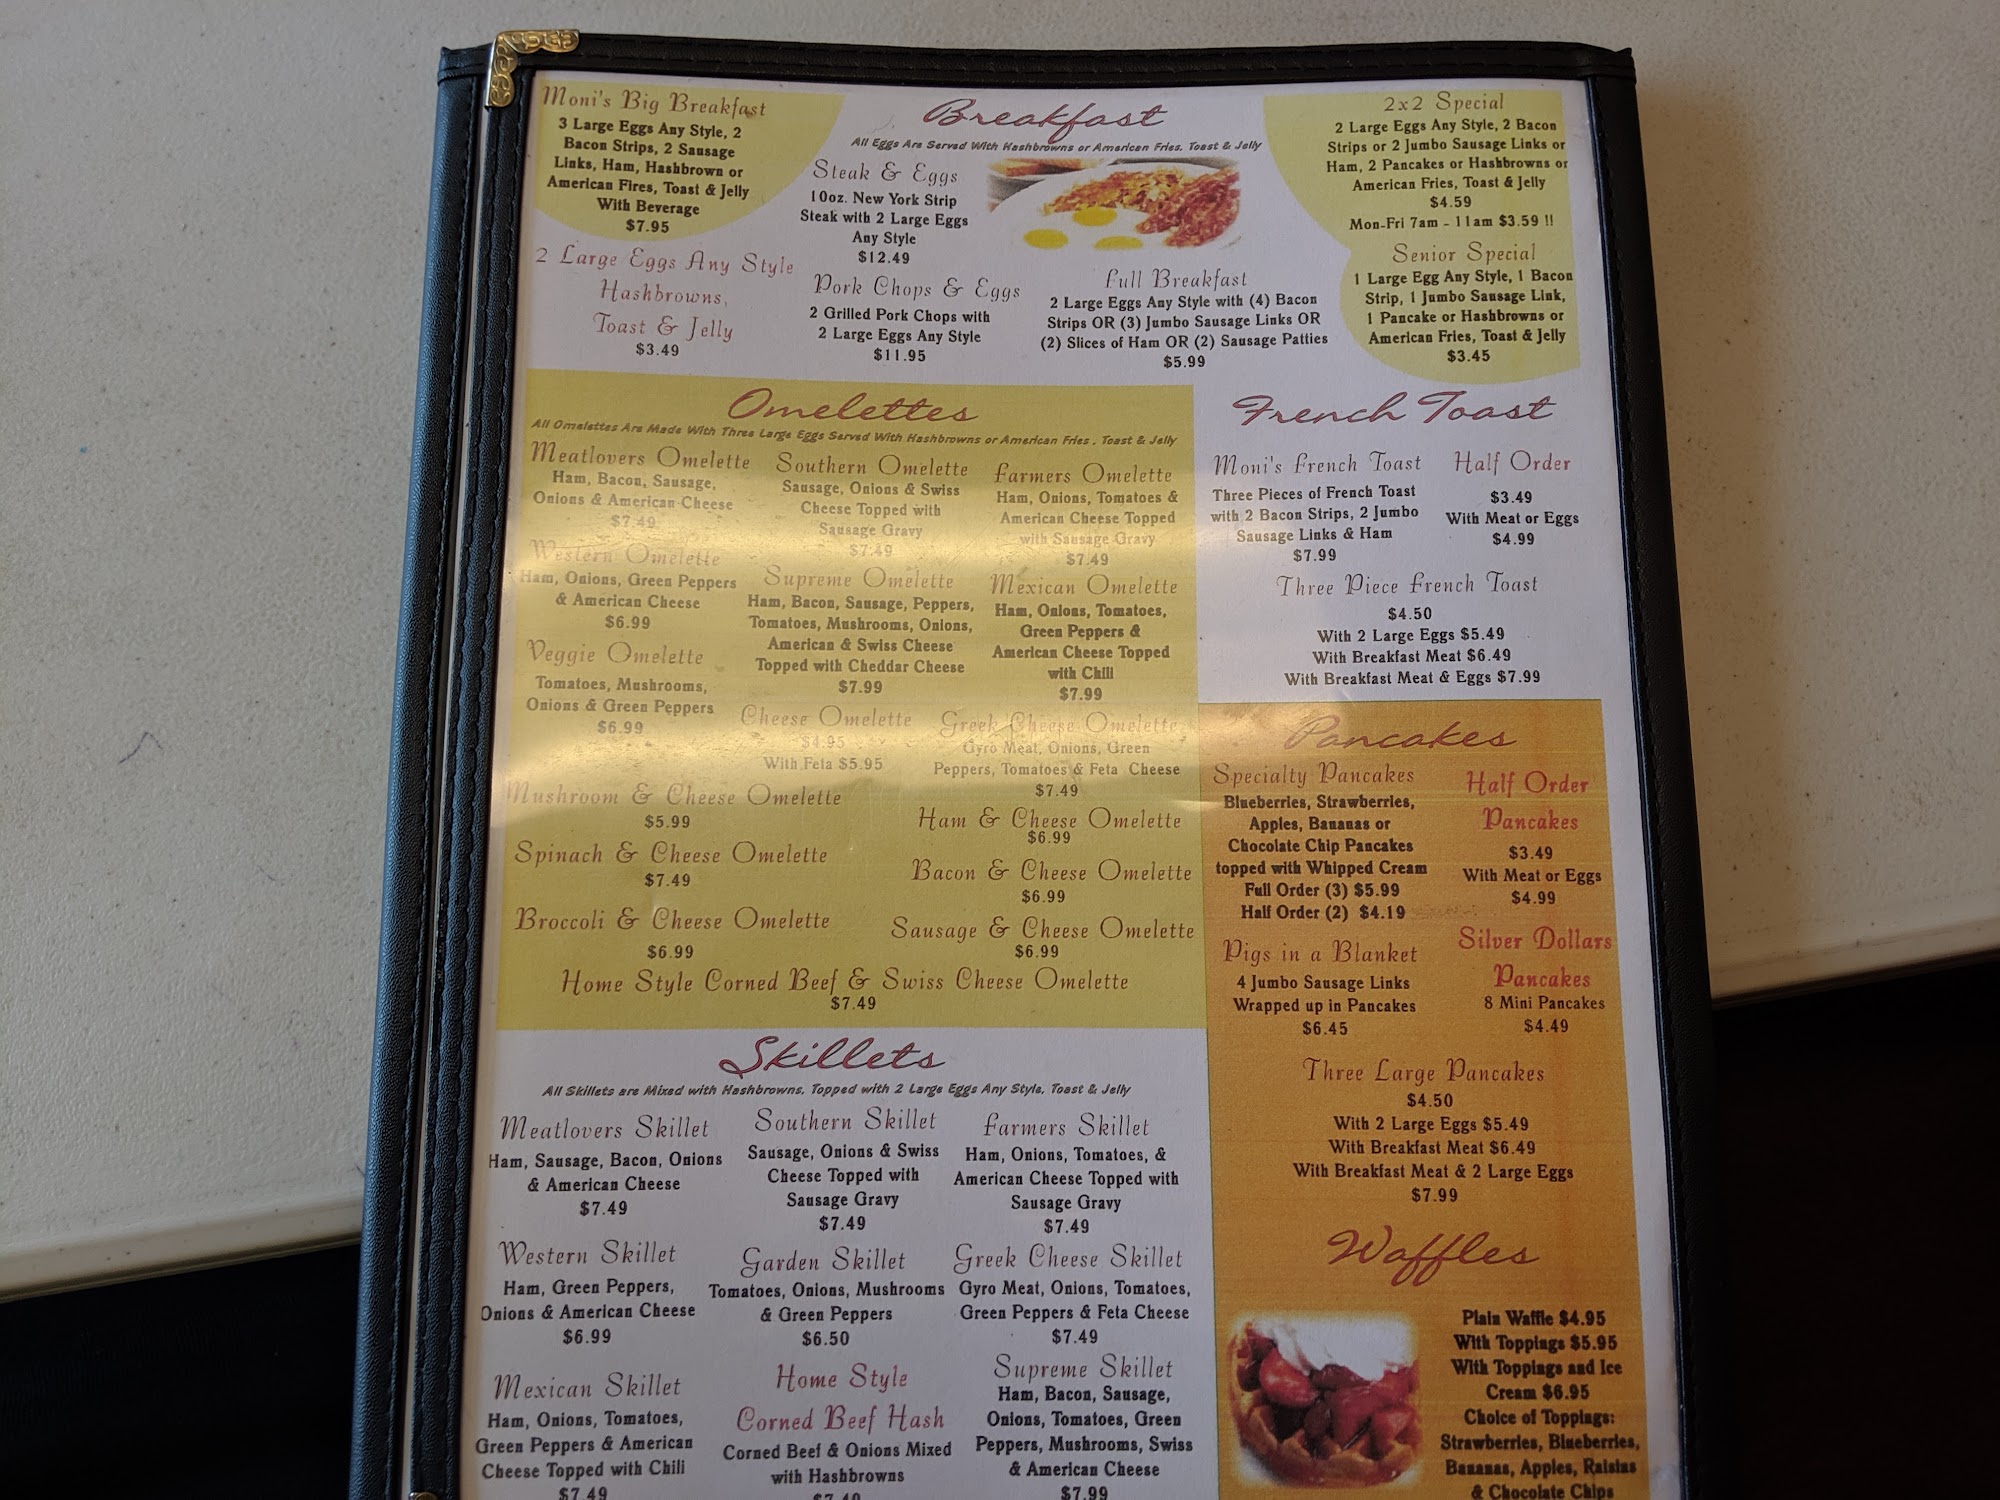 Moni's Big Breakfast
3 Large Eggs Any Style, 2
Bacon Strips, 2 Sausage
Links, Ham, Hashbrown or
American Fires, Toast & Jelly
With Beverage
$7.95
2 Large Eggs Any Style
Hashbrowns,
Toast & Jelly
$3.49
Breakfast
All Eggs Are Served With Hashbrowns or American Fries, Toast & Jelly
Steak & Eggs
10oz. New York Strip
Steak with 2 Large Eggs
Any Style
$12.49
Pork Chops & Eggs
2 Grilled Pork Chops with
2 Large Eggs Any Style
$11.95
Full Breakfast
2 Large Eggs Any Style with (4) Bacon
Strips OR (3) Jumbo Sausage Links OR
(2) Slices of Ham OR (2) Sausage Patties
$5.99
2x2 Special
2 Large Eggs Any Style, 2 Bacon
Strips or 2 Jumbo Sausage Links or
Ham, 2 Pancakes or Hashbrowns or
American Fries, Toast & Jelly
$4.59
Mon-Fri 7am - 11am $3.59 !!
Senior Special
1 Large Egg Any Style, 1 Bacon
Strip, 1 Jumbo Sausage Link,
1 Pancake or Hashbrowns or
American Fries, Toast & Jelly
$3.45
Omelettes
All Omelettes Are Made With Three Large Eggs Served With Hashbrowns or American Fries , Toast & Jelly
Meatlovers Omelette
Ham, Bacon, Sausage,
Onions & American Cheese
$7.49
Western Omelette
Ham, Onions, Green Peppers
& American Cheese
$6.99
Veggie Omelette
Tomatoes, Mushrooms,
Onions & Green Peppers
$6.99
Southern Omelette
Sausage, Onions & Swiss
Cheese Topped with
Sausage Gravy
$7.49
Supreme Omelette
Ham, Bacon, Sausage, Peppers,
Tomatoes, Mushrooms, Onions,
American & Swiss Cheese
Topped with Cheddar Cheese
$7.99
Cheese Omelette
$4.95
With Feta $5.95
Farmers Omelette
Ham, Onions, Tomatoes &
American Cheese Topped
with Sausage Gravy
$7.49
Mexican Omelette
Ham, Onions, Tomatoes,
Green Peppers &
American Cheese Topped
with Chili
$7.99
Greek Cheese Omelette
Gyro Meat, Onions, Green
Peppers, Tomatoes & Feta Cheese
$7.49
Mushroom & Cheese Omelette
$5.99
Spinach & Cheese Omelette
$7.49
Broccoli & Cheese Omelette
$6.99
Ham & Cheese Omelette
$6.99
Bacon & Cheese Omelette
$6.99
Sausage & Cheese Omelette
$6.99
Home Style Corned Beef & Swiss Cheese Omelette
$7.49
French Toast
Moni's French Toast
Three Pieces of French Toast
with 2 Bacon Strips, 2 Jumbo
Sausage Links & Ham
$7.99
Half Order
$3.49
With Meat or Eggs
$4.99
Three Piece French Toast
$4.50
With 2 Large Eggs $5.49
With Breakfast Meat $6.49
With Breakfast Meat & Eggs $7.99
Pancakes
Specialty Pancakes
Blueberries, Strawberries,
Apples, Bananas or
Chocolate Chip Pancakes
topped with Whipped Cream
Full Order (3) $5.99
Half Order (2) $4.19
Half Order
Pancakes
$3.49
With Meat or Eggs
$4.99
Pigs in a Blanket
4 Jumbo Sausage Links
Wrapped up in Pancakes
$6.45
Silver Dollars
Pancakes
8 Mini Pancakes
$4.49
Three Large Pancakes
$4.50
With 2 Large Eggs $5.49
With Breakfast Meat $6.49
With Breakfast Meat & 2 Large Eggs
$7.99
Skillets
All Skillets are Mixed with Hashbrowns, Topped with 2 Large Eggs Any Style, Toast & Jelly
Meatlovers Skillet
Ham, Sausage, Bacon, Onions
& American Cheese
$7.49
Southern Skillet
Sausage, Onions & Swiss
Cheese Topped with
Sausage Gravy
$7.49
Farmers Skillet
Ham, Onions, Tomatoes, &
American Cheese Topped with
Sausage Gravy
$7.49
Western Skillet
Ham, Green Peppers,
Onions & American Cheese
$6.99
Garden Skillet
Tomatoes, Onions, Mushrooms
& Green Peppers
$6.50
Greek Cheese Skillet
Gyro Meat, Onions, Tomatoes,
Green Peppers & Feta Cheese
$7.49
Mexican Skillet
Ham, Onions, Tomatoes,
Green Peppers & American
Cheese Topped with Chili
$7.49
Home Style
Corned Beef Hash
Corned Beef & Onions Mixed
with Hashbrowns
Supreme Skillet
Ham, Bacon, Sausage,
Onions, Tomatoes, Green
Peppers, Mushrooms, Swiss
& American Cheese
$7.99
Waffles
Plain Waffle $4.95
With Toppings $5.95
With Toppings and Ice
Cream $6.95
Choice of Toppings:
Strawberries, Blueberries,
Bananas, Apples, Raisins
& Chocolate Chips